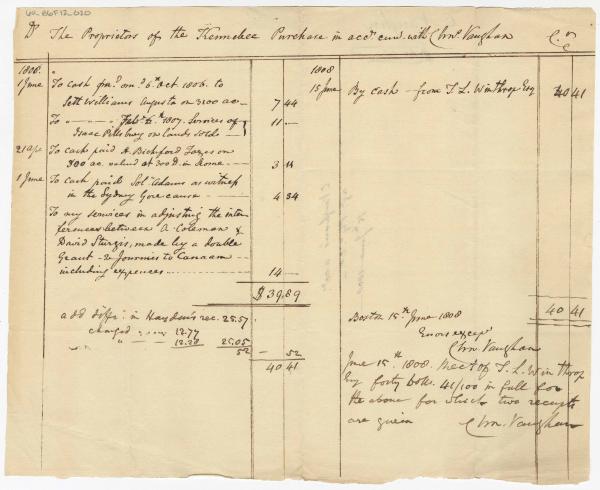 Dr The Proprietors of the Kennebec Purchase in acct. curr. with Chs. Vaughan Cr
1808.
1 June To cash pd. on 6th Oct 1806. to
Seth Williams Augusta on 3100 ac. 7 44
To Feby. 6th 1807. Services of
Isaac Pillsbury on Lands sold 11 —
21 To cash paid A. Bickford Taxes on
800 ac. valued at 300 D. in Rome 3 11
1 June To cash paid Sol. Adams as witness
in the Sydney Gore cause 4 34
To my services in adjusting the inter
ferences between A. Coleman &
David Sturgis, made by a double
Grant - 2 Journies to Canaan
including expences 14 —
$ 39.89
add differ. in Hayden's rec. 25.57
charged 12.77
12.28 25.05
52 — 52
40 41
1808
15 June By cash from T. L. Winthrop Esq 40 41
40 41
Boston 15th June 1808
Errors excep.
Chs. Vaughan
June 15th 1808. Recd of T. L. Winthrop
Esq forty dolls. 41/100 in full for
the above for which two receipts
are given Chs. Vaughan